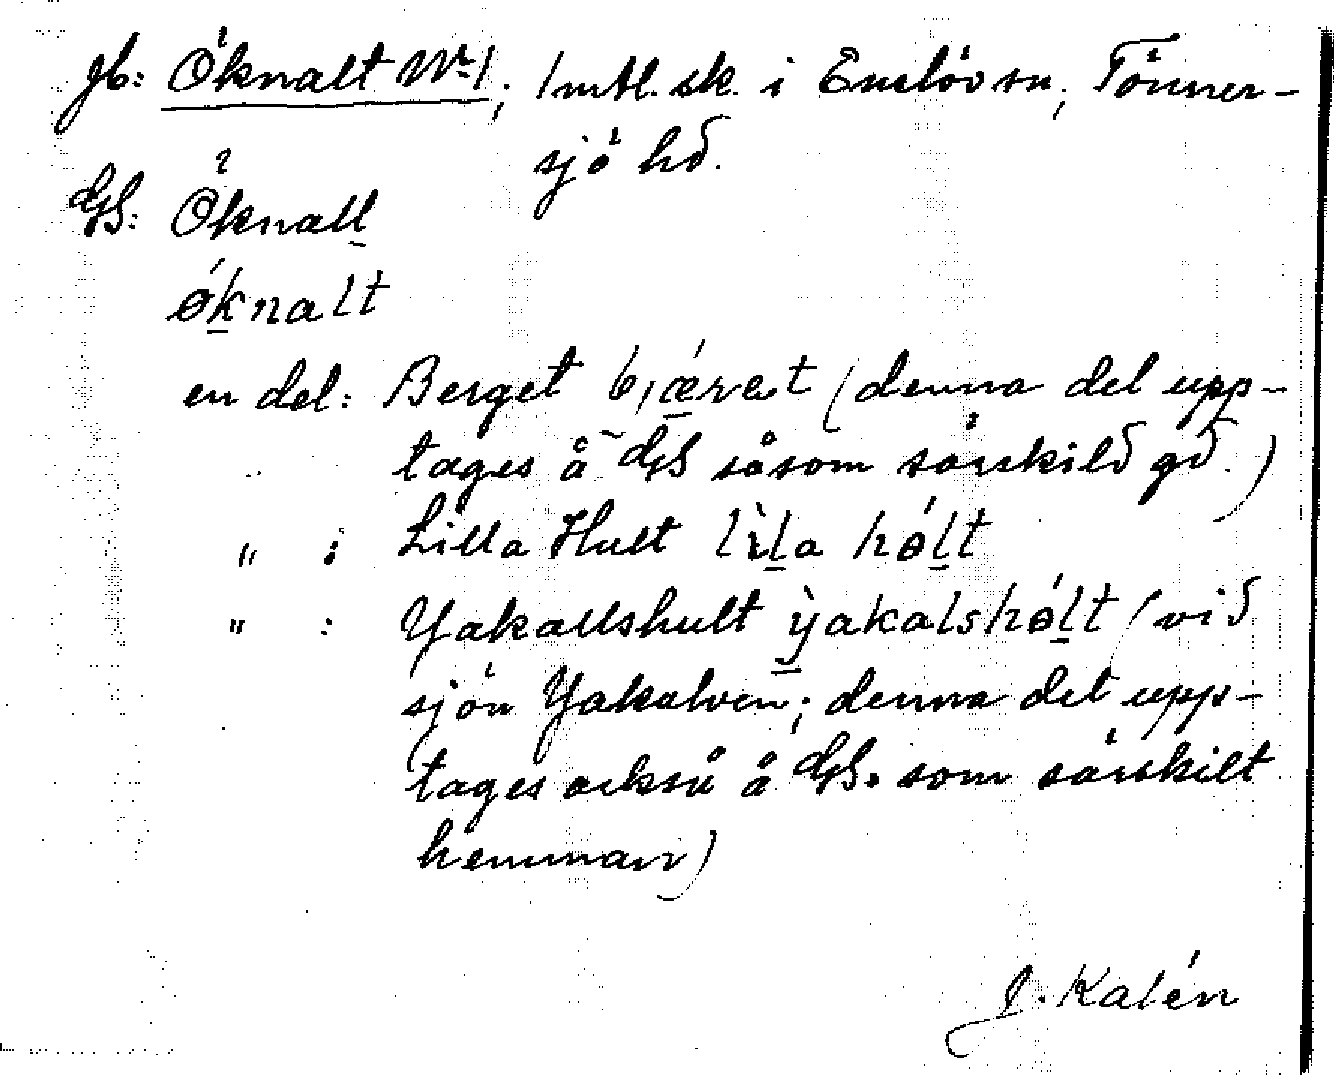 Jb: Öknalt Nr 1; 1 mtl. sk. i Enslöv sn, Tönner-
sjö hd.
GS: Öknall
øknalt
en del: Berget bjæret (denna del upp-
tages å GS såsom särskild gd.)
" : Lilla Hult lìla hólt
" : Yakallshult ỳakalshólt (vid
sjön Yakalven; denna del upp-
tages också å GS. som särskilt
hemman)
J. Kalén